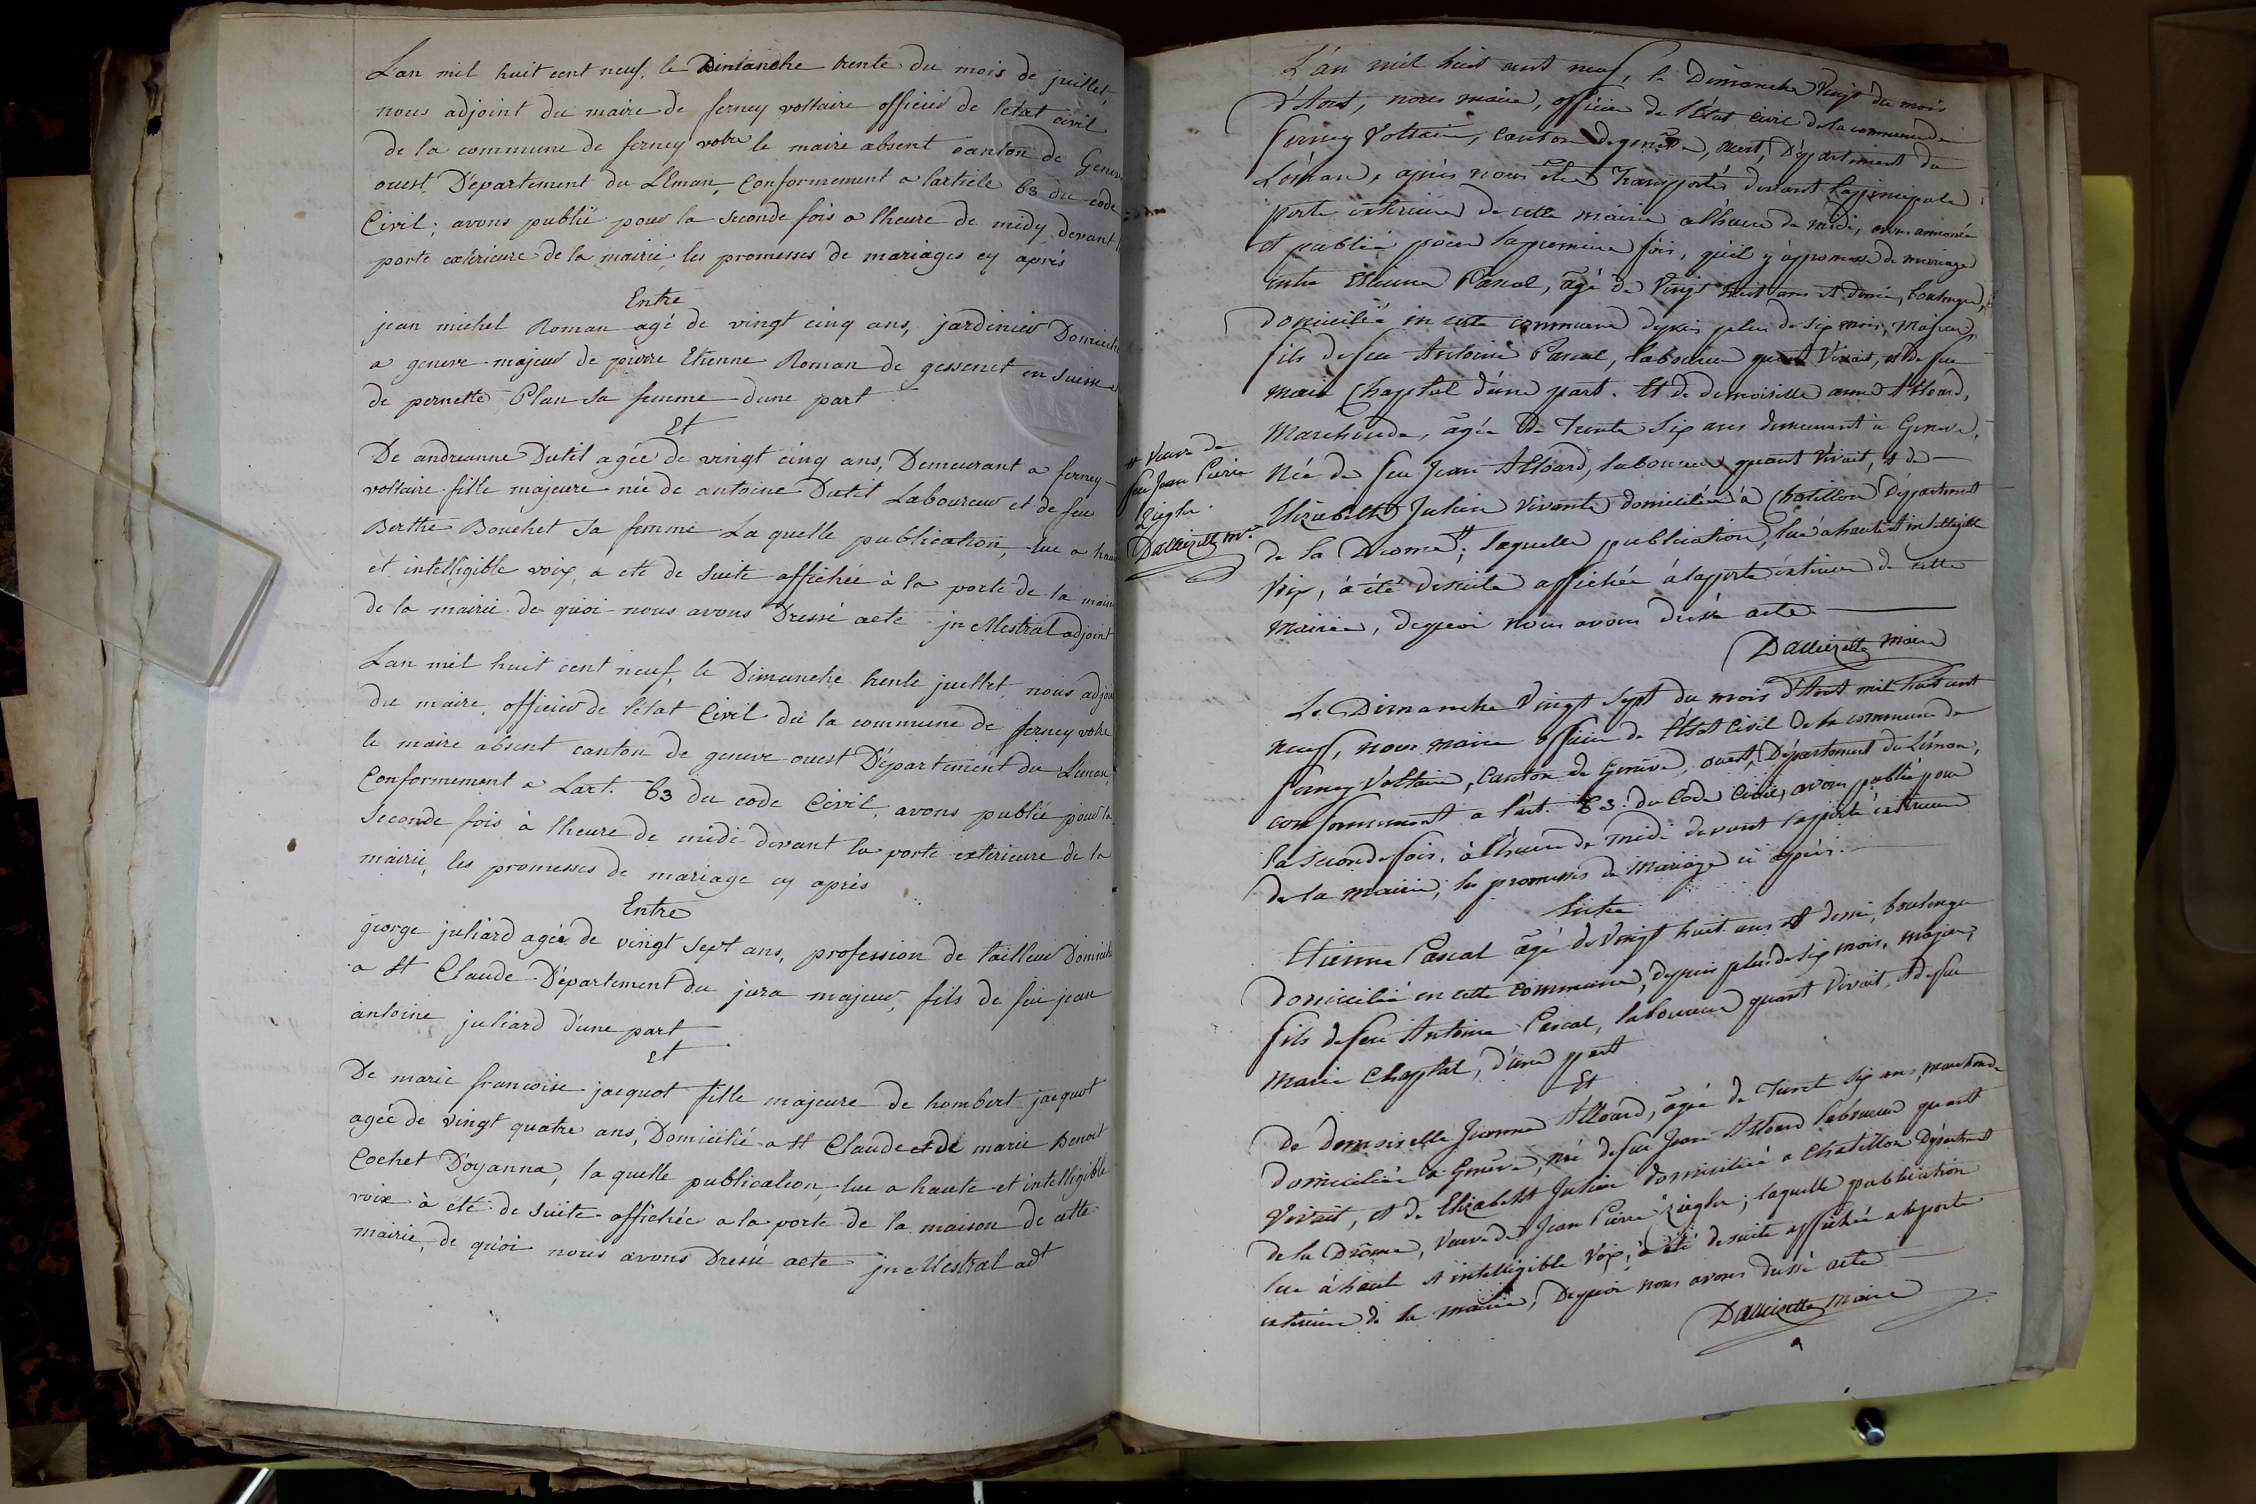 Lan mil huit cent neuf, le Dimanche trente du mois de juillet,
nous adjoint du maire de ferney voltaire officier de letat civil
de la commune de ferney votre le maire absent canton de Genev
ouest, Département du Léman, Conformement a larticle 63 du code
Civil; avons publié pour la seconde fois a lheure de midy devant l
porte exterieure de la mairie, les promesses de mariages cy après
Entre
jean michel Roman agé de vingt cinq ans, jardinier Domicilié
a geneve majeur de pierre Etienne Roman de gessenet en Suisse et
de pernette Plan sa femme dune part
Et
De andreanne Dutil agée de vingt cinq ans, Demeurant a ferney
voltaire fille majeure née de antoine Dutil Laboureur et de feu
Berthe Bouchet sa femme La quelle publication, lue a hau
et intelligible voix, a eté de suite affichée à la porte de la mais
de la mairie de quoi nous avons Dressé acte jn Mestral adjoint
Lan mil huit cent neuf, le Dimanche trente juillet nous adjoi
du maire, officier de l'état Civil de la commune de ferney votre
le maire absent canton de geneve ouest Département du Léman,
Conformement a Lart. 63 du code Civil, avons publié pour la
seconde fois à lheure de midi devant la porte exterieure de la
mairie, les promesses de mariage cy après
Entre
george juliard agée de vingt sept ans, profession de tailleur Domicilié
a St Claude Département du jura majeur, fils de feu jean
antoine juliard d'une part
Et
De marie francoise jacquot fille majeure de humbert jacquot
agée de vingt quatre ans, Domicilié a St Claude et de marie Benoit
Cochet D'oyanna, la quelle publication, lue a haute et intelligible
voix à eté de suite affichée a la porte de la maison de cette
mairie, de quoi nous avons Dressé acte jn Mestral adt
L'an mil huit cent neuf, le Dimanche Vingt du mois
d'Aout, nous maire, officier de l'État Civil de la commune de
Ferney Voltaire, canton de genève, ouest, Département du
Léman, après nous être Transportés devant la principale
porte exterieure de cette mairie a l'heure de midi, avons annoncé
et publié pour la premiere fois, qu'il y a promesse de mariage
entre Etienne Pascal, âgé de Vingt huit ans et demi, boulanger,
domicilié en cette commune depuis plus de six mois, majeur,
fils de feu Antoine Pascal, laboureur quant Vivait, et de feu
marie Chaptal d'une part. Et de demoiselle anne Alloard,
Marchande, agée de Trente Six ans demeurant à Geneve,
Née de feu Jean Alloard, laboureur quant Vivait, et de
Elizabeth Julien vivante domiciliée à Chatillon Département
de la Drome #; laquelle publication, lue a haute et intelligible
Voix, à été de suite affichée à la porte éxterieure de cette
Mairie, de quoi nous avons dressé acte.
# Veuve de
feu Jean Pierre
Ziegler.
Dallizette mre
Dallizette Maire
Le Dimanche Vingt sept du mois d'Aout mil huit cent
neuf, nous maire officier de l'État Civil de la commune de
ferney Voltaire, Canton de Genève, ouest, Département du Léman,
conformement a l'art. 63 du Code Civil, avons publié pour
la seconde fois, à l'heure de midi devant la porte éxterieure
de la mairie, les promesses de Mariage ci après.
Entre
Etienne Pascal âgé de Vingt huit ans et demi, boulanger
Domicilié en cette Commune, depuis plus de six mois, majeur,
fils de feu Antoine Pascal, laboureur quant Vivait, et de feu
Marie Chaptal, d'une part
Et
De Demoiselle Jeanne Alloard, agée de Trent Six ans, marchande
Domiciliée a Genève, née de feu Jean Alloard laboureur quant
Vivait, et de Elizabeth Julien domiciliée a Chatillon Département
de la Drôme, Veuve de Jean Pierre Ziegler; laquelle publication
lue à haute et intelligible Voix, à été de suite affichée a la porte
exterieure de la mairie, De quoi nous avons dressé acte
Dallizette Maire